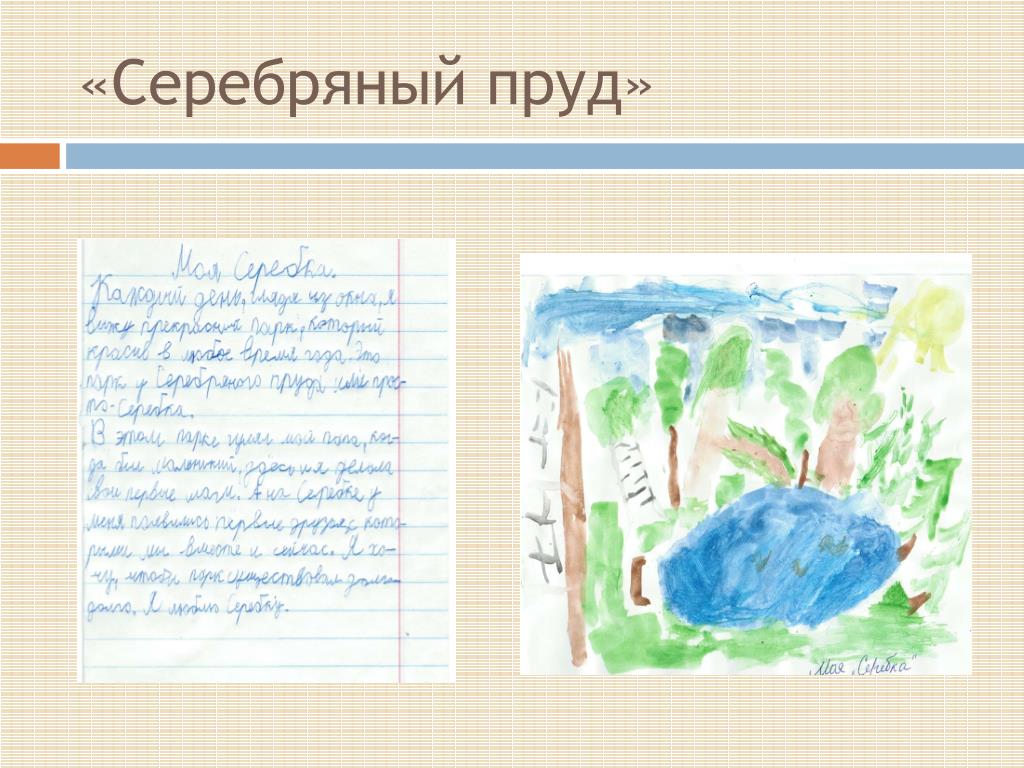 «Серебряный пруд»
Моя Серебка.
Каждый день, глядя из окна, я
вижу прекрасный парк, который
красив в любое время года. Это
парк у Серебряного пруда или прос-
то- Серебка.
В этом парке гулял мой папа, ког-
да был маленький, здесь и я делала
свои первые шаги. А на Серебке у
меня появились первые друзья, кото-
рыми мы вместе и сейчас. Я хо-
чу, чтобы парк существовал долго-
долго. Я люблю Серебку.
„Моя „Серебка"